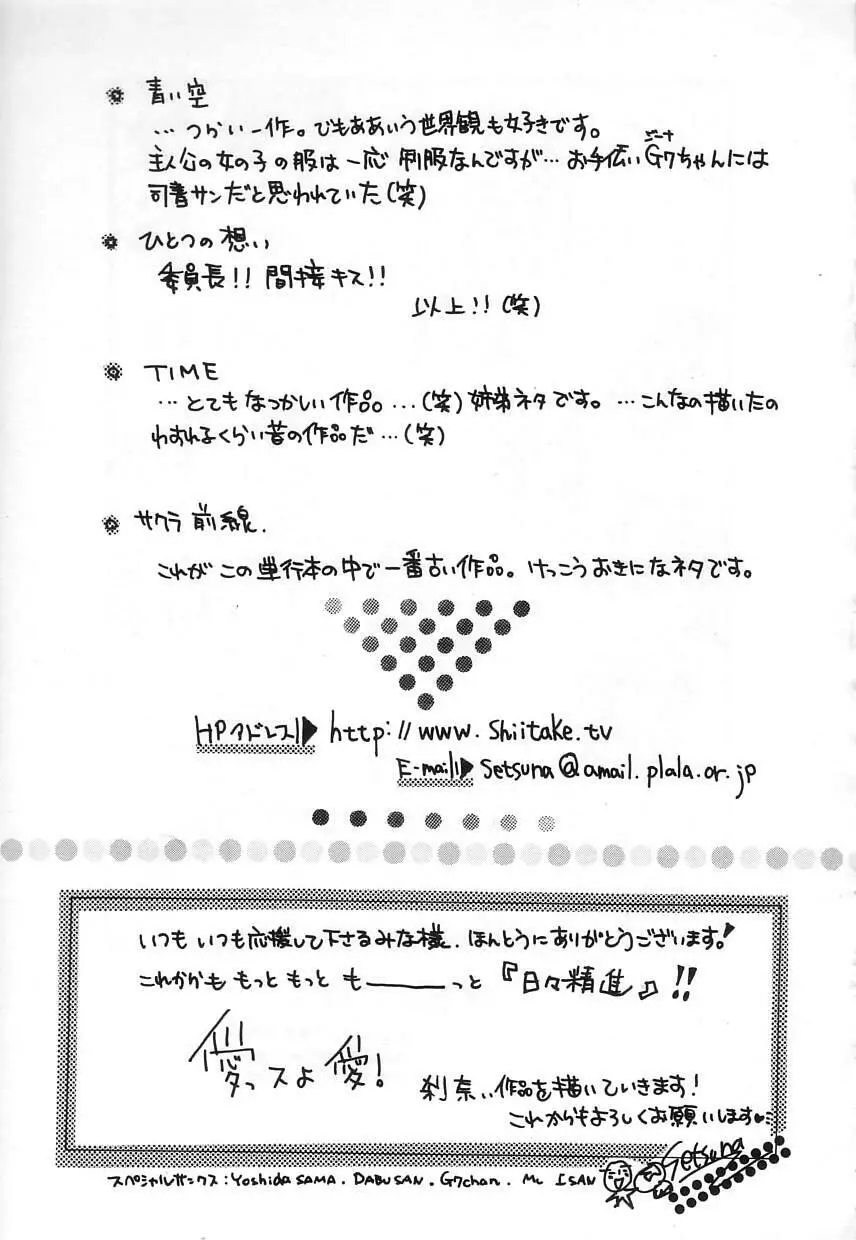 青い空
… つかい一作。でもああいう世界観も好きです。
主人公の女の子の服は一応 制服なんですが… お手伝いG7ちゃんには
ジーナ
司書サンだと思われていた(笑)
ひとつの想い
委員長!! 間接キス!!
以上!! (笑)
TIME
… とてもなつかしい作品 …(笑) 姉弟ネタです。 … こんなの描いたの
わすれるくらい昔の作品だ …(笑)
サクラ前線.
これが この単行本の中で一番古い作品。けっこうおきになネタです。
HPアドレス▶ http://www.shiitake.tv
E-mail▶ setsuna@amail.plala.or.jp
いつも いつも応援して下さるみな様. ほんとうにありがとうございます!
これからも もっと もっと も───っと 『日々精進』!!
愛っスよ 愛!
刹奈.. 作品を描いていきます!
これからもよろしくお願いします♥
Setsuna
スペシャルサンクス: Yoshida SAMA. DABUSAN. G7chan. Mc ISAN